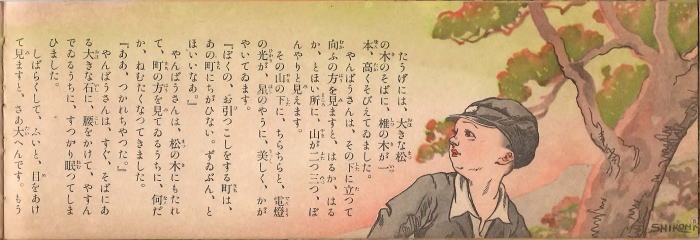 たうげには、大きな松
の木のそばに、椎の木が一
本、高くそびえてゐました。
やんばうさんは、その下に立つて
向ふの方を見ますと、はるか、はる
か、とほい所に、山が二つ三つ、ぼ
んやりと見えます。
その山の下に、ちらちらと、電燈
の光が、星のやうに、美しく、かが
やいてゐます。
『ぼくの、お引つこしをする町は、
あの町にちがひない。ずゐぶん、と
ほいいなあ。』
やんばうさんは、松の木にもたれ
て、町の方を見てゐるうちに、何だ
か、ねむたくなつてきました。
『ああ、つかれちやつた。』
やんばうさんは、すぐ、そばにあ
る大きな石に、腰をかけて、やすん
でゐるうちに、すつかり眠つてしま
ひました。
しばらくして、ふいと、目をあけ
て見ますと、さあ大へんです。もう
SHIKOH